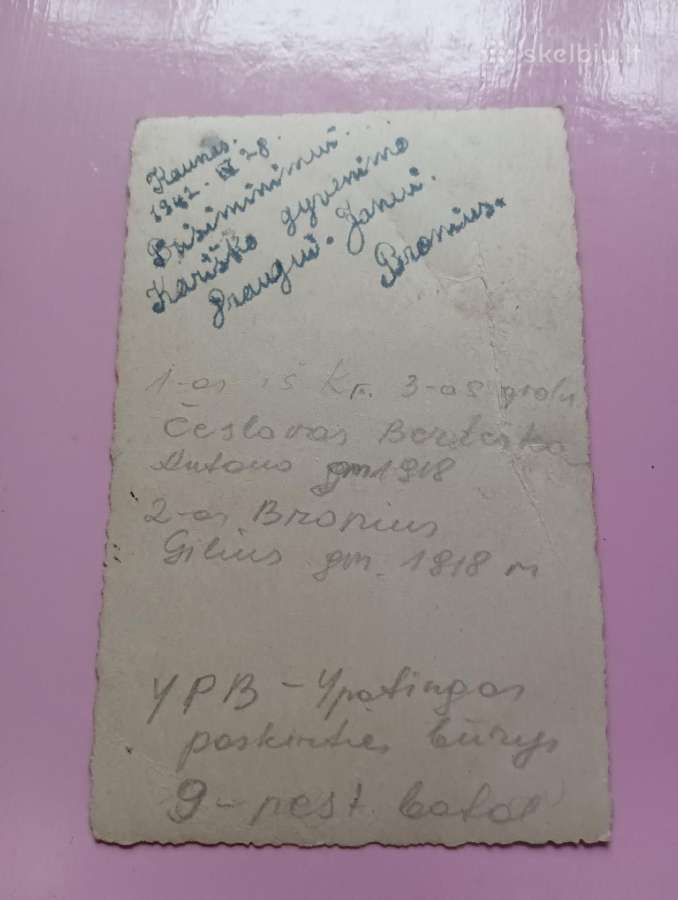 skelbiu.lt
Kaunas.
1942. IV 28.
Prisiminimui.
Kariško gyvenimo
Draugui. Jonui.
Bronius.
1-as iš Kr. 3-os
Česlovas
Antano gm 1918
2-as Bronius
Gilius gm. 1918 m
YPB - Ypatingos
paskirties būrys
9 - pest. batal